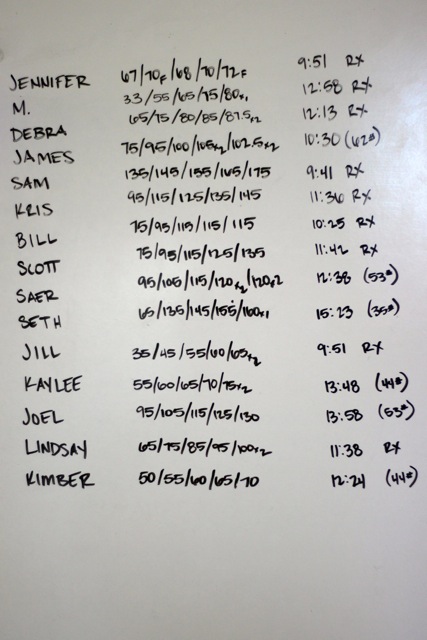 JENNIFER 67/70F/68/70/72F 9:51 RX
M. 33/55/65/75/80x1 12:58 RX
DEBRA 65/75/80/85/87.5x2 12:13 RX
JAMES 75/95/100/105x2/102.5x2 10:30 (62#)
SAM 135/145/155/165/175 9:41 RX
KRIS 95/115/125/135/145 11:36 RX
BILL 75/95/115/115/115 10:25 RX
SCOTT 75/95/115/125/135 11:42 RX
SAER 95/105/115/120x2/120x2 12:38 (53#)
SETH 65/135/145/155/160x1 15:23 (35#)
JILL 35/45/55/60/65x2 9:51 RX
KAYLEE 55/60/65/70/75x2 13:48 (44#)
JOEL 95/105/115/125/130 13:58 (53#)
LINDSAY 65/75/85/95/100x2 11:38 RX
KIMBER 50/55/60/65/70 12:24 (44#)